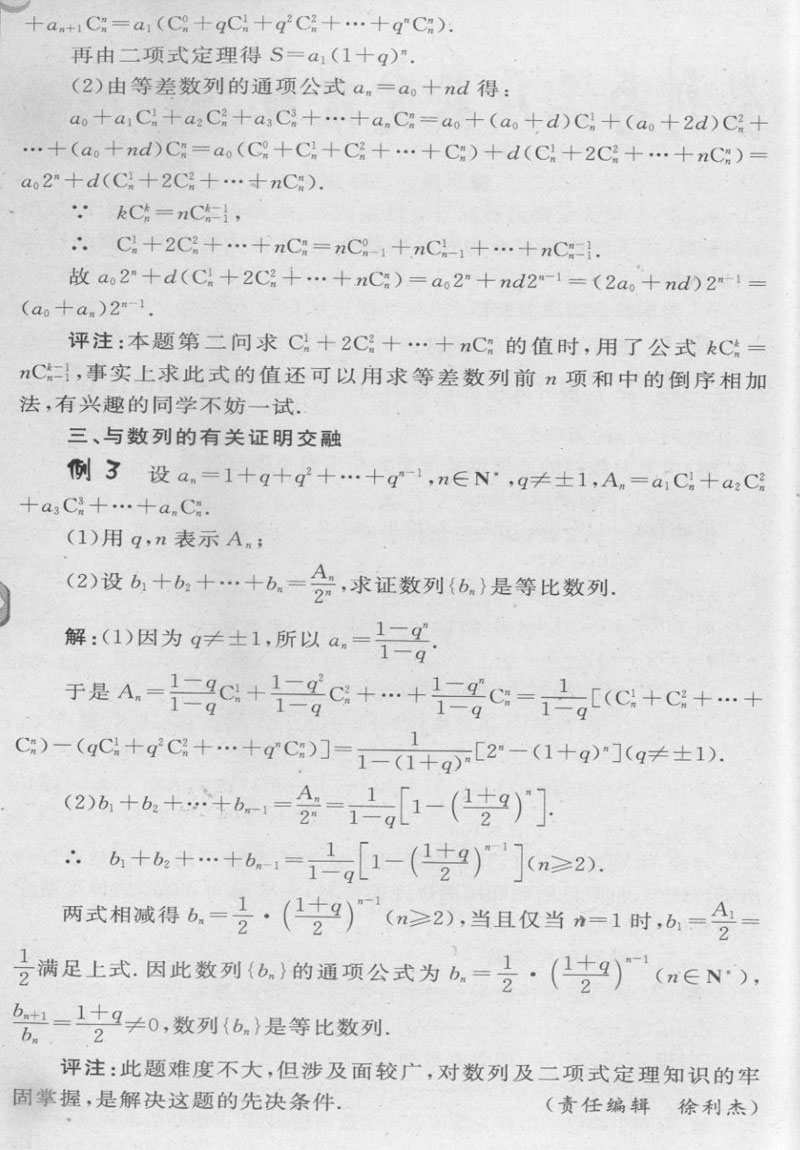 +aₙ₊₁Cₙⁿ=a₁(Cₙ⁰+qCₙ¹+q²Cₙ²+⋯+qⁿCₙⁿ).
再由二项式定理得 S=a₁(1+q)ⁿ.
(2)由等差数列的通项公式 aₙ=a₀+nd 得:
a₀+a₁Cₙ¹+a₂Cₙ²+a₃Cₙ³+⋯+aₙCₙⁿ=a₀+(a₀+d)Cₙ¹+(a₀+2d)Cₙ²+
⋯+(a₀+nd)Cₙⁿ=a₀(Cₙ⁰+Cₙ¹+Cₙ²+⋯+Cₙⁿ)+d(Cₙ¹+2Cₙ²+⋯+nCₙⁿ)=
a₀2ⁿ+d(Cₙ¹+2Cₙ²+⋯+nCₙⁿ).
∵ kCₙᵏ=nCₙ₋₁ᵏ⁻¹,
∴ Cₙ¹+2Cₙ²+⋯+nCₙⁿ=nCₙ₋₁⁰+nCₙ₋₁¹+⋯+nCₙ₋₁ⁿ⁻¹.
故 a₀2ⁿ+d(Cₙ¹+2Cₙ²+⋯+nCₙⁿ)=a₀2ⁿ+nd2ⁿ⁻¹=(2a₀+nd)2ⁿ⁻¹=
(a₀+aₙ)2ⁿ⁻¹.
评注:本题第二问求 Cₙ¹+2Cₙ²+⋯+nCₙⁿ 的值时,用了公式 kCₙᵏ=
nCₙ₋₁ᵏ⁻¹,事实上求此式的值还可以用求等差数列前 n 项和中的倒序相加
法,有兴趣的同学不妨一试.
三、与数列的有关证明交融
例 3 设 aₙ=1+q+q²+⋯+qⁿ⁻¹,n∈N*,q≠±1,Aₙ=a₁Cₙ¹+a₂Cₙ²
+a₃Cₙ³+⋯+aₙCₙⁿ.
(1)用 q,n 表示 Aₙ;
(2)设 b₁+b₂+⋯+bₙ=Aₙ/2ⁿ,求证数列{bₙ}是等比数列.
解:(1)因为 q≠±1,所以 aₙ=(1-qⁿ)/(1-q).
于是 Aₙ=(1-q)/(1-q)Cₙ¹+(1-q²)/(1-q)Cₙ²+⋯+(1-qⁿ)/(1-q)Cₙⁿ=1/(1-q)[(Cₙ¹+Cₙ²+⋯+
Cₙⁿ)-(qCₙ¹+q²Cₙ²+⋯+qⁿCₙⁿ)]=1/(1-(1+q)ⁿ)[2ⁿ-(1+q)ⁿ](q≠±1).
(2)b₁+b₂+⋯+bₙ₋₁=Aₙ/2ⁿ=1/(1-q)[1-((1+q)/2)ⁿ].
∴ b₁+b₂+⋯+bₙ₋₁=1/(1-q)[1-((1+q)/2)ⁿ⁻¹](n≥2).
两式相减得 bₙ=1/2·((1+q)/2)ⁿ⁻¹(n≥2),当且仅当 n=1 时,b₁=A₁/2=
1/2满足上式.因此数列{bₙ}的通项公式为 bₙ=1/2·((1+q)/2)ⁿ⁻¹(n∈N*),
bₙ₊₁/bₙ=(1+q)/2≠0,数列{bₙ}是等比数列.
评注:此题难度不大,但涉及面较广,对数列及二项式定理知识的牢
固掌握,是解决这题的先决条件. (责任编辑 徐利杰)